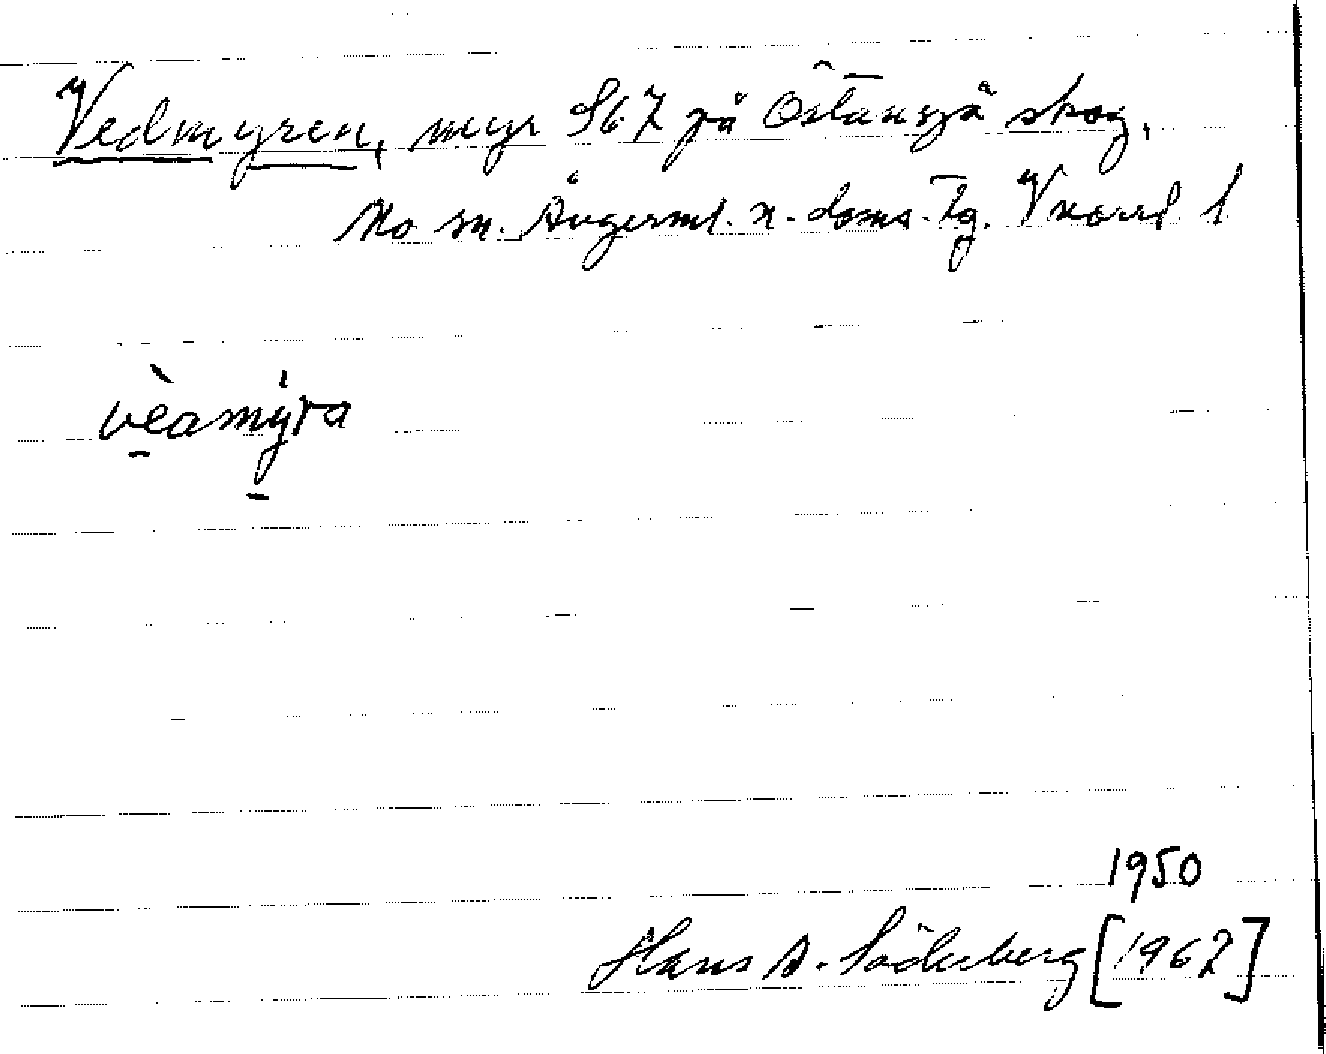 Vedmyren, myr S67 på Östansjö skog,
Mo sn. Ångerml. n. doms. Tg. V norrl 1
vèamýra
1950
Hans A. Söderberg [1967]